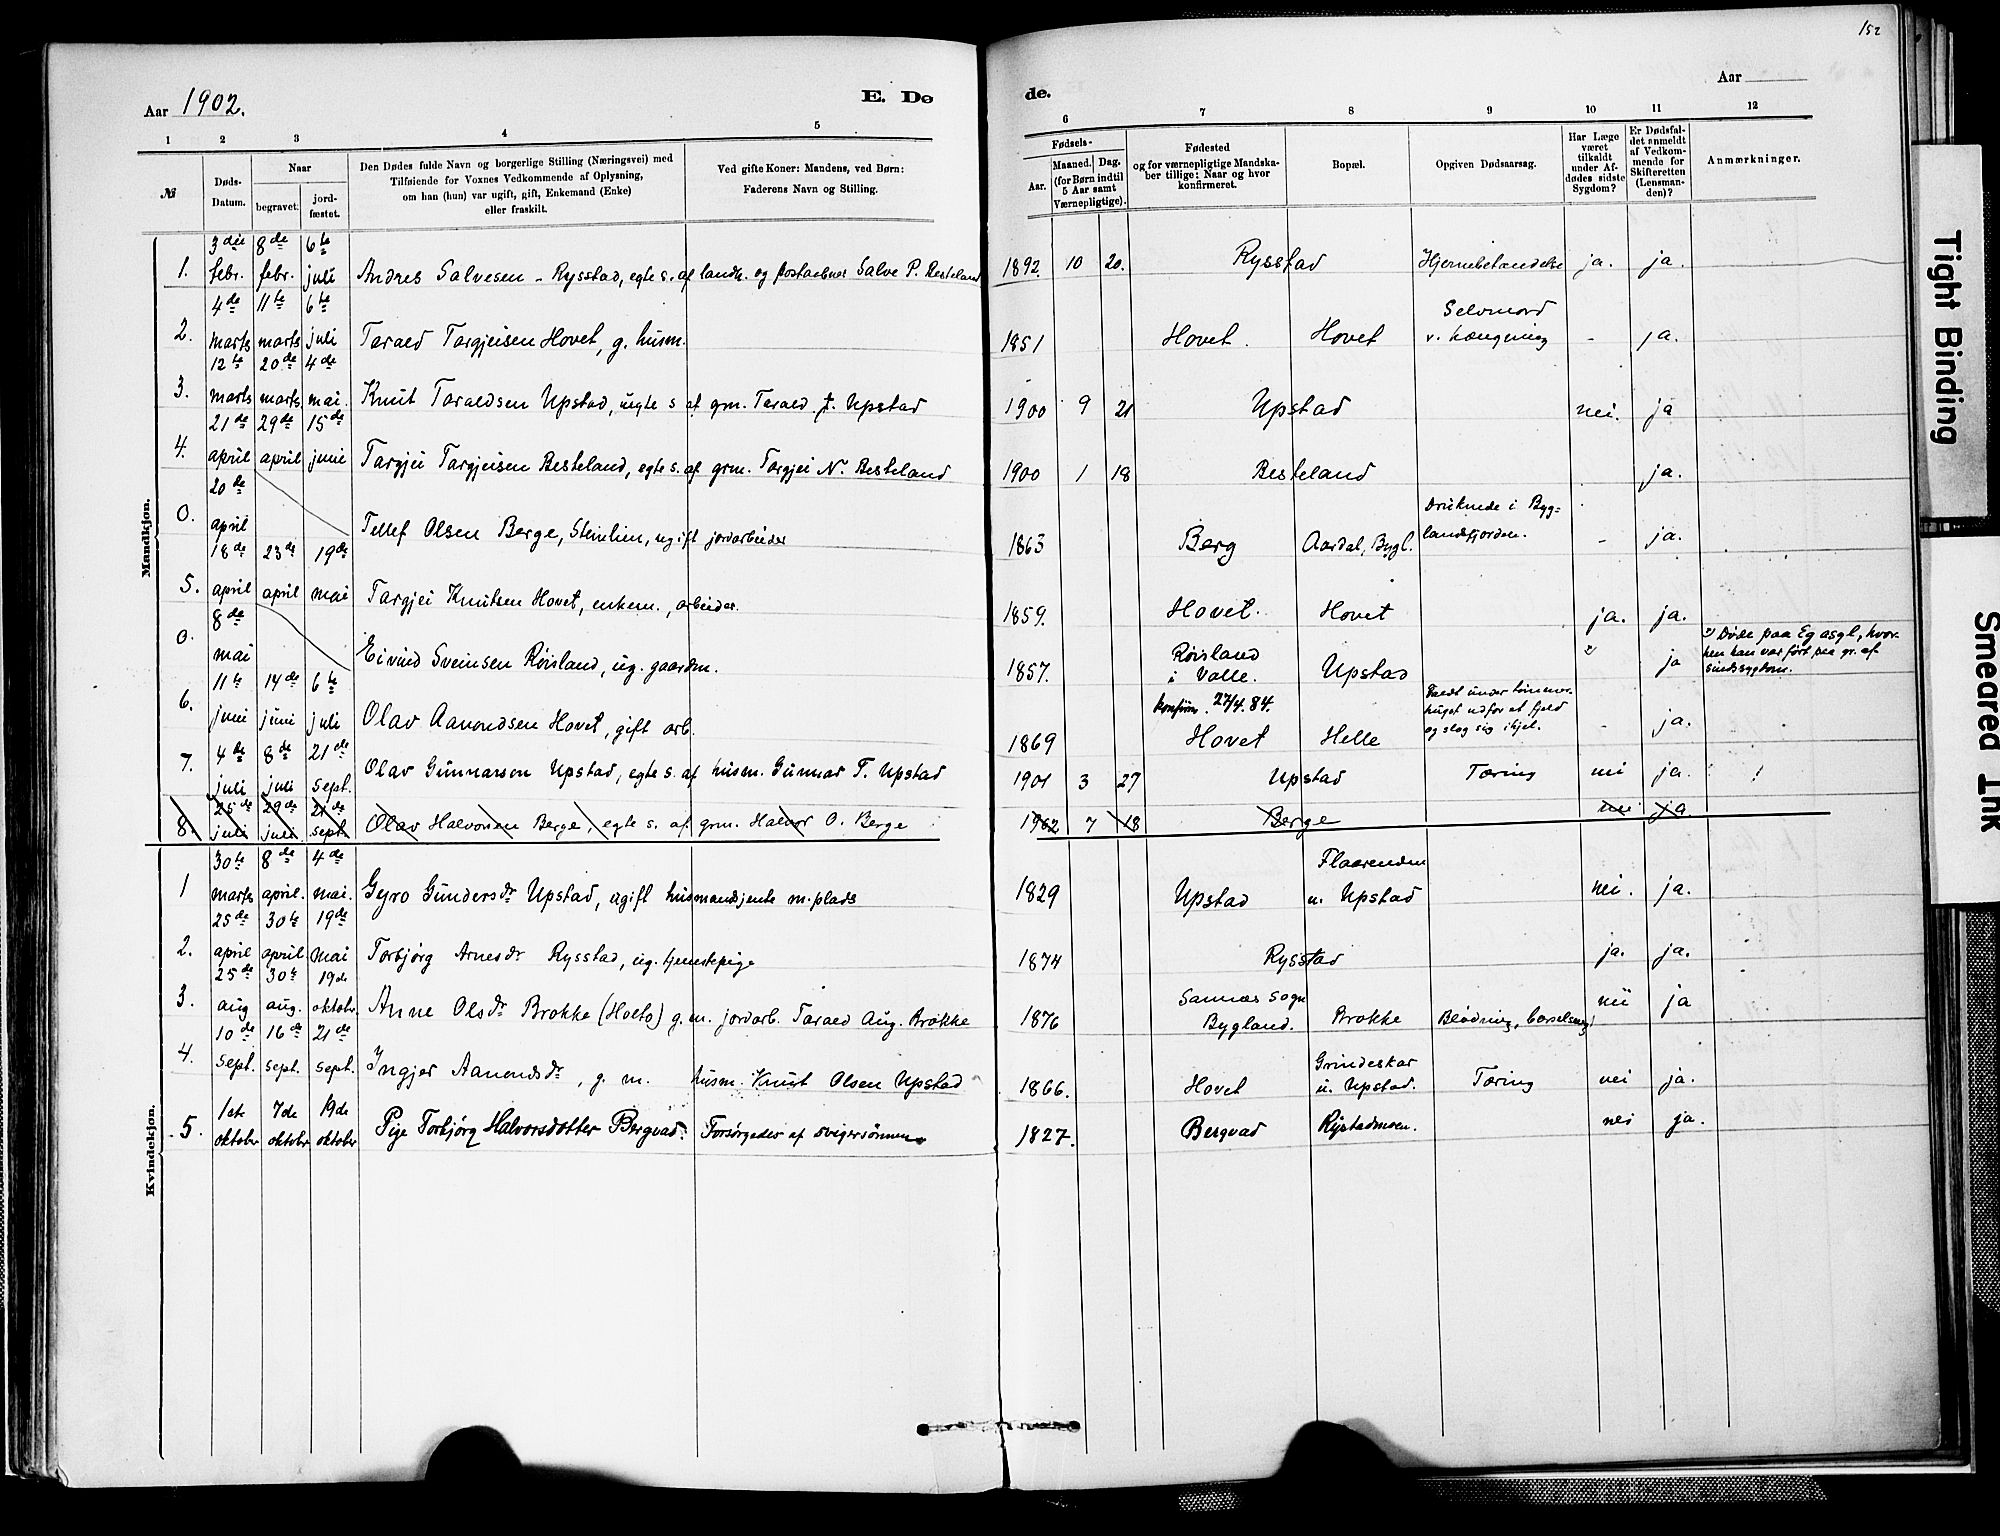 152
Aar 1902.
E. Dø
de.
Aar
1 2 3 4 5 6 7 8 9 10 11 12
№
Døds-
Datum.
Naar
begravet.
jord-
fæstet.
Den Dødes fulde Navn og borgerlige Stilling (Næringsvei) med
Tilføiende for Voxnes Vedkommende af Oplysning,
om han (hun) var ugift, gift, Enkemand (Enke)
eller fraskilt.
Ved gifte Koner: Mandens, ved Børn:
Faderens Navn og Stilling.
Fødsels-
Aar.
Maaned. Dag.
(for Børn indtil
5 Aar samt
Værnepligtige).
Fødested
og for værnepligtige Mandska-
ber tillige: Naar og hvor
konfirmeret.
Bopæl.
Opgiven Dødsaarsag.
Har Læge
været
tilkaldt
under Af-
dødes sidste
Sygdom?
Er Dødsfal-
det anmeldt
af Vedkom-
mende for
Skifteretten
(Lensman-
den)?
Anmærkninger.
Mandkjøn.
3die 8de 6te
1. febr. febr. juli Andres Salvesen - Rysstad, egte s. af landh. og postaabner Salve P. Besteland 1892. 10 20. Rysstad Hjernebetændelse ja. ja.
4de 11te 6te Selvmord
2. marts marts juli Tarald Targjeisen Hovet, g. husm. 1851 Hovet. Hovet v. hængning - ja.
12te 20de 4de
3. marts marts. mai. Knut Taraldsen Upstad, uegte s. af grm. Tarald J. Upstad 1900 9 21 Upstad nei. ja
21de 29de 15de
4. april april juni Targjei Targjeisen Besteland, egte s. af grm. Targjei N. Besteland 1900 1 18 Besteland ja.
20de Druknede i Byg-
0. april Tellef Olsen Berge, ugift jordarbeider 1863 Berg Aardal, Bygl. landsfjorden. - ja.
18de 23de 19de
5. april april mai Targjei Knutsen Hovet, enkem., arbeider. 1859. Hovet. Hovet ja. ja.
8de
0. mai Eivind Sveinsen Röisland, ug. gaardm. 1857. Röisland i Valle. Upstad ja Döde paa Eg asyl, hvor-
hen han var fört paa gr. af
sindssygdom.
konfirm. 27/4.84.
11te 14de 6te
6. juni juni juli Olav Aanondsen Hovet, gift arb. 1869 Hovet Helle Faldt under tömmer-
huget udfor et fjeld
og slog sig ihjel. - ja.
4de 8de 21de
7. juli juli sept. Olav Gunnarson Upstad, egte s. af husm. Gunnar T. Upstad 1901 3 27 Upstad Tæring nei ja. !
25de 29de 21de
8. juli juli sept. Olav Halvorsen Berge, egte s. af grm. Halvor O. Berge 1902 7 18 Berge nei ja.
Kvindekjøn.
30te 8de 4de Flaarenden
1 marts april. mai. Gyro Gundersdr Upstad, ugift husmandsjente m. plads 1829 Upstad u. Upstad nei. ja.
25de 30te 19de
2. april april. mai Torbjørg Arnesdr Rysstad, ug. tjenestepige 1874 Rysstad ja. ja.
25de 30te 19de Sannæs sogn
3. aug aug. oktobr. Anne Olsdr Brokke (Hoeto) g. m. jordarb. Tarald Aug. Brokke 1876 Bygland. Brokke Blødning, barselseng nei ja
10de 16de 21de Grindeskar
4. sept. sept. sept. Ingjer Aanondsdr, g. m. husm. Knut Olsen Upstad 1866. Hovet u. Upstad. Tæring nei ja.
1ste 7de 19de
5. oktobr oktobr oktobr Pige Torbjörg Halvorsdotter Bergvad. Forsørgedes af svigersönnen 1827. Bergvad Rystadmoen. nei ja.
Tight Binding
Smeared Ink